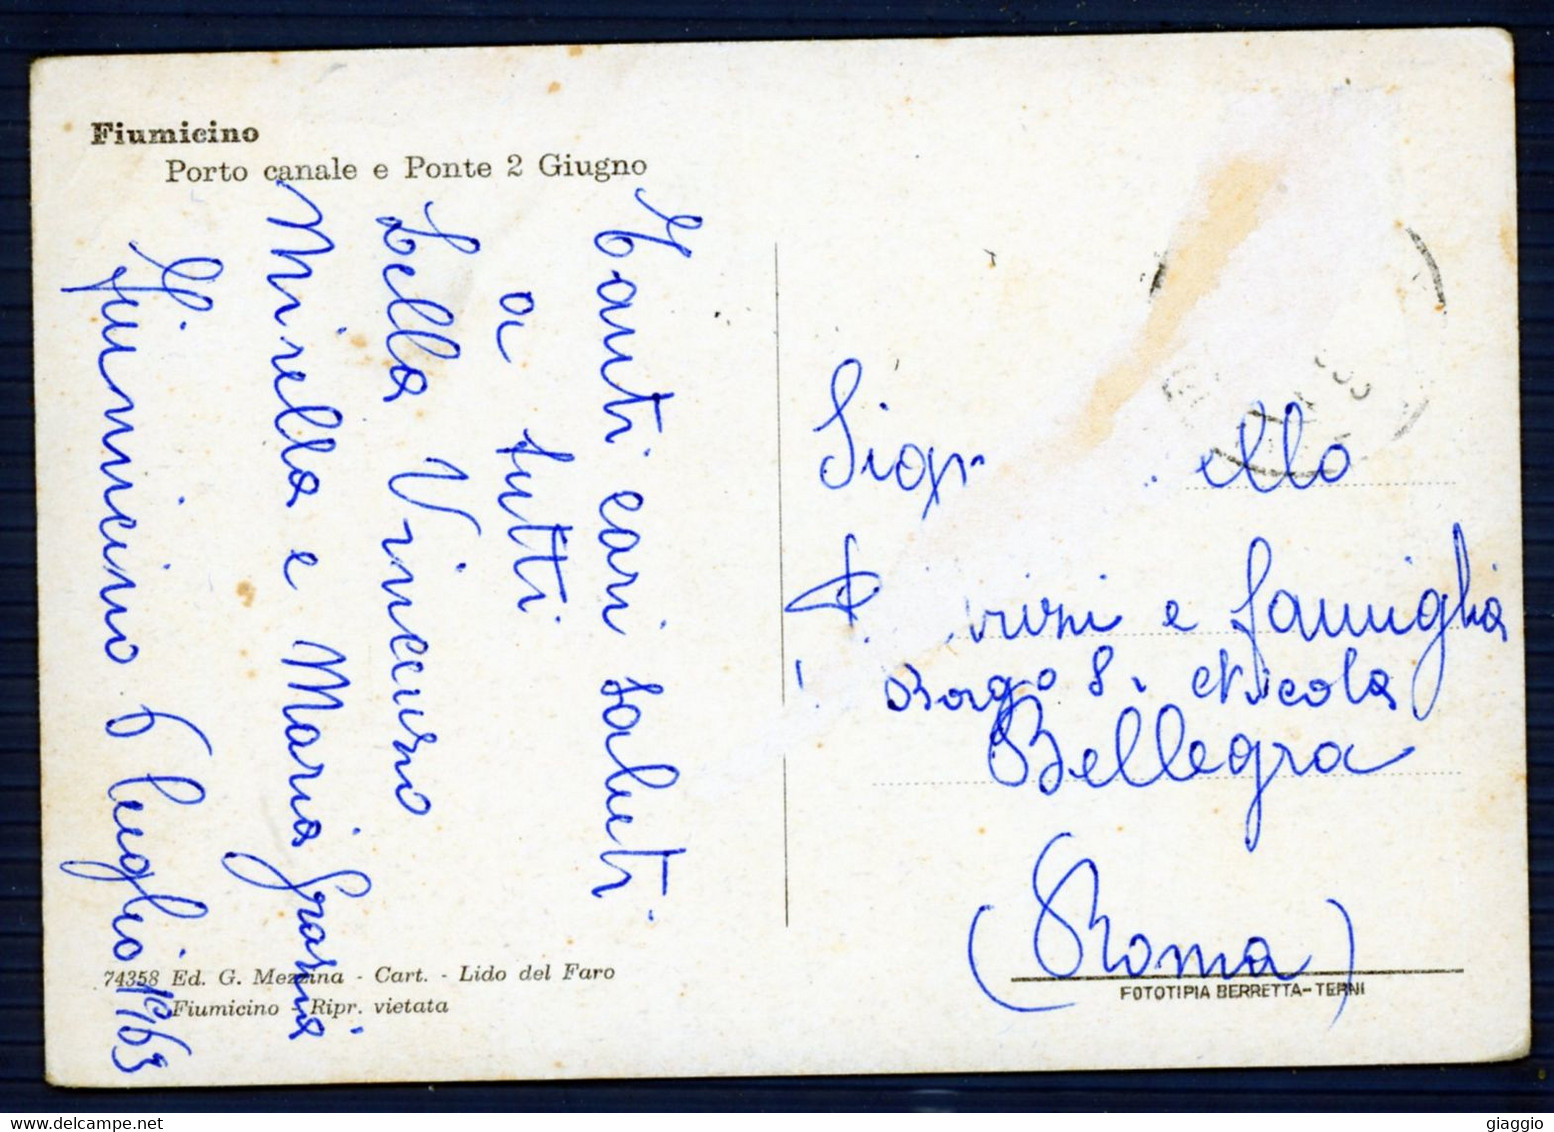 Fiumicino
Porto canale e Ponte 2 Giugno
Tanti cari saluti
a tutti
Lella Vincenzo
Mirella e Maria Grazia
Fiumicino 6 luglio 1963
74358 Ed. G. Mezzina - Cart. - Lido del Faro
Fiumicino - Ripr. vietata
Sigr
e famiglia
Borgo S. Nicola
Bellegra
(Roma)
FOTOTIPIA BERRETTA-TERNI
giaggio